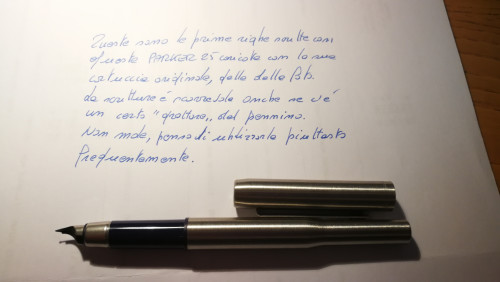 Queste sono le prime righe scritte con
questa PARKER 25 caricata con la sua
cartuccia originale, della della
La scrittura è scorrevole anche se c'è
un certo "grattare„ del pennino.
Non male, penso di utilizzarla piuttosto
frequentemente.